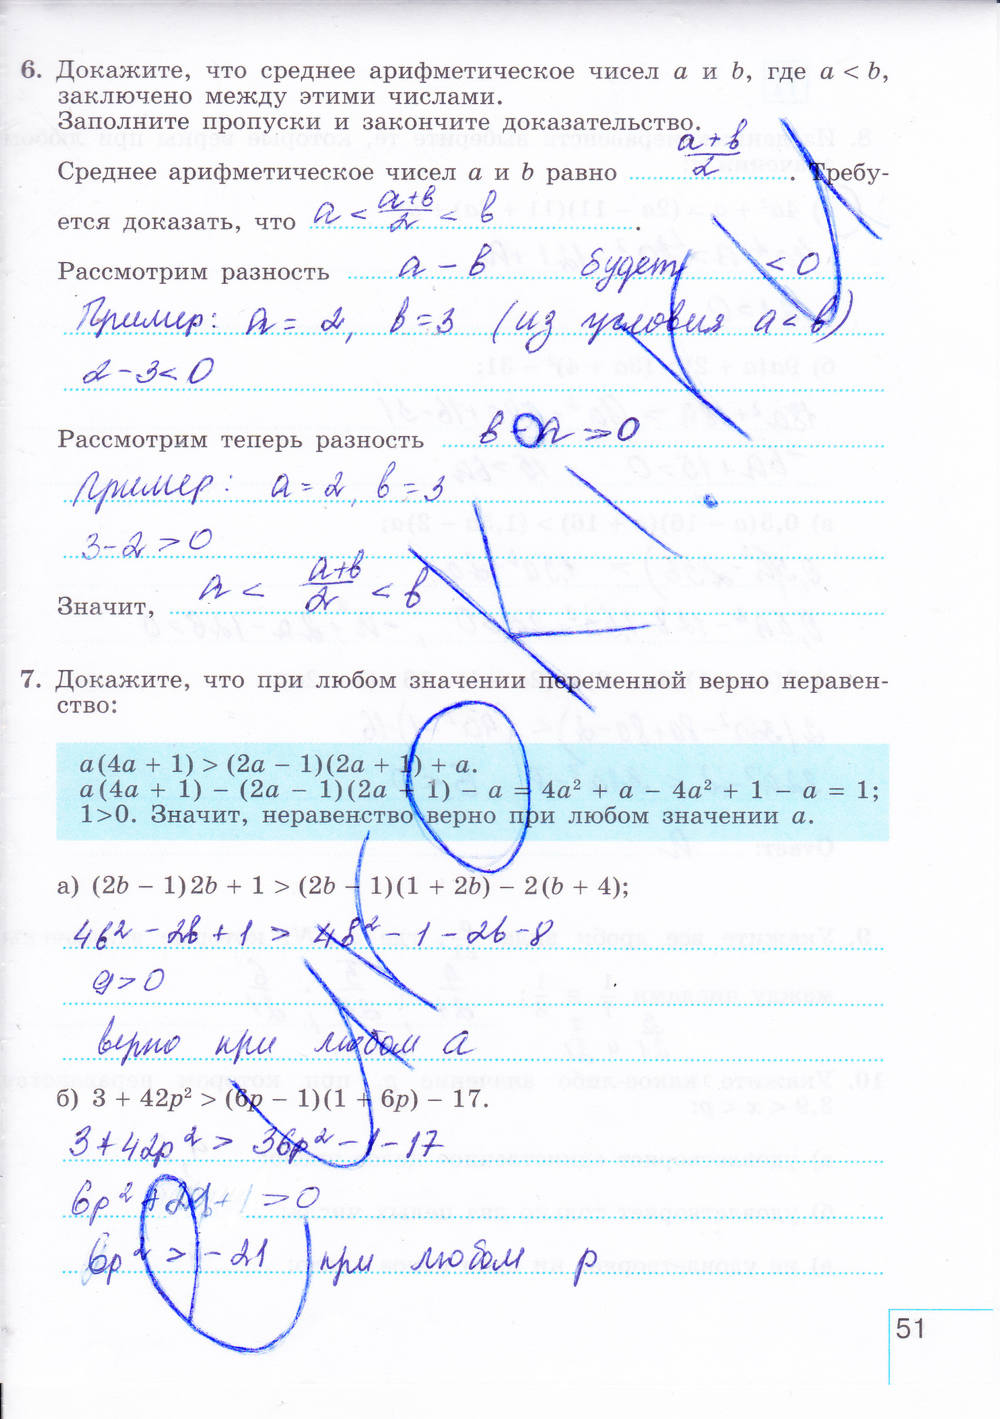 6. Докажите, что среднее арифметическое чисел a и b, где a < b,
заключено между этими числами.
Заполните пропуски и закончите доказательство.
Среднее арифметическое чисел a и b равно (a+b)/2. Требу-
ется доказать, что a < (a+b)/2 < b.
Рассмотрим разность a – b будет < 0
Пример: a = 2, b = 3 (из условия a < b)
2 – 3 < 0
Рассмотрим теперь разность b – a > 0
Пример: a = 2, b = 3
3 – 2 > 0
Значит, a < (a+b)/2 < b
7. Докажите, что при любом значении переменной верно неравен-
ство:
a(4a + 1) > (2a – 1)(2a + 1) + a.
a(4a + 1) – (2a – 1)(2a + 1) – a = 4a² + a – 4a² + 1 – a = 1;
1>0. Значит, неравенство верно при любом значении a.
а) (2b – 1)2b + 1 > (2b – 1)(1 + 2b) – 2(b + 4);
4b² – 2b + 1 > 4b² – 1 – 2b – 8
9 > 0
верно при любом a
б) 3 + 42p² > (6p – 1)(1 + 6p) – 17.
3 + 42p² > 36p² – 1 – 17
6p² + 21 > 0
6p² > – 21 при любом p
51